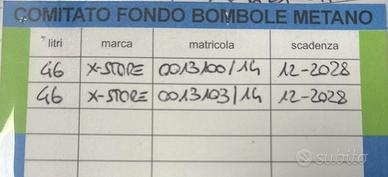 COMITATO FONDO BOMBOLE METANO
litri marca matricola scadenza
46 X-STORE 0013100/14 12-2028
46 X-STORE 0013103/14 12-2028
subito